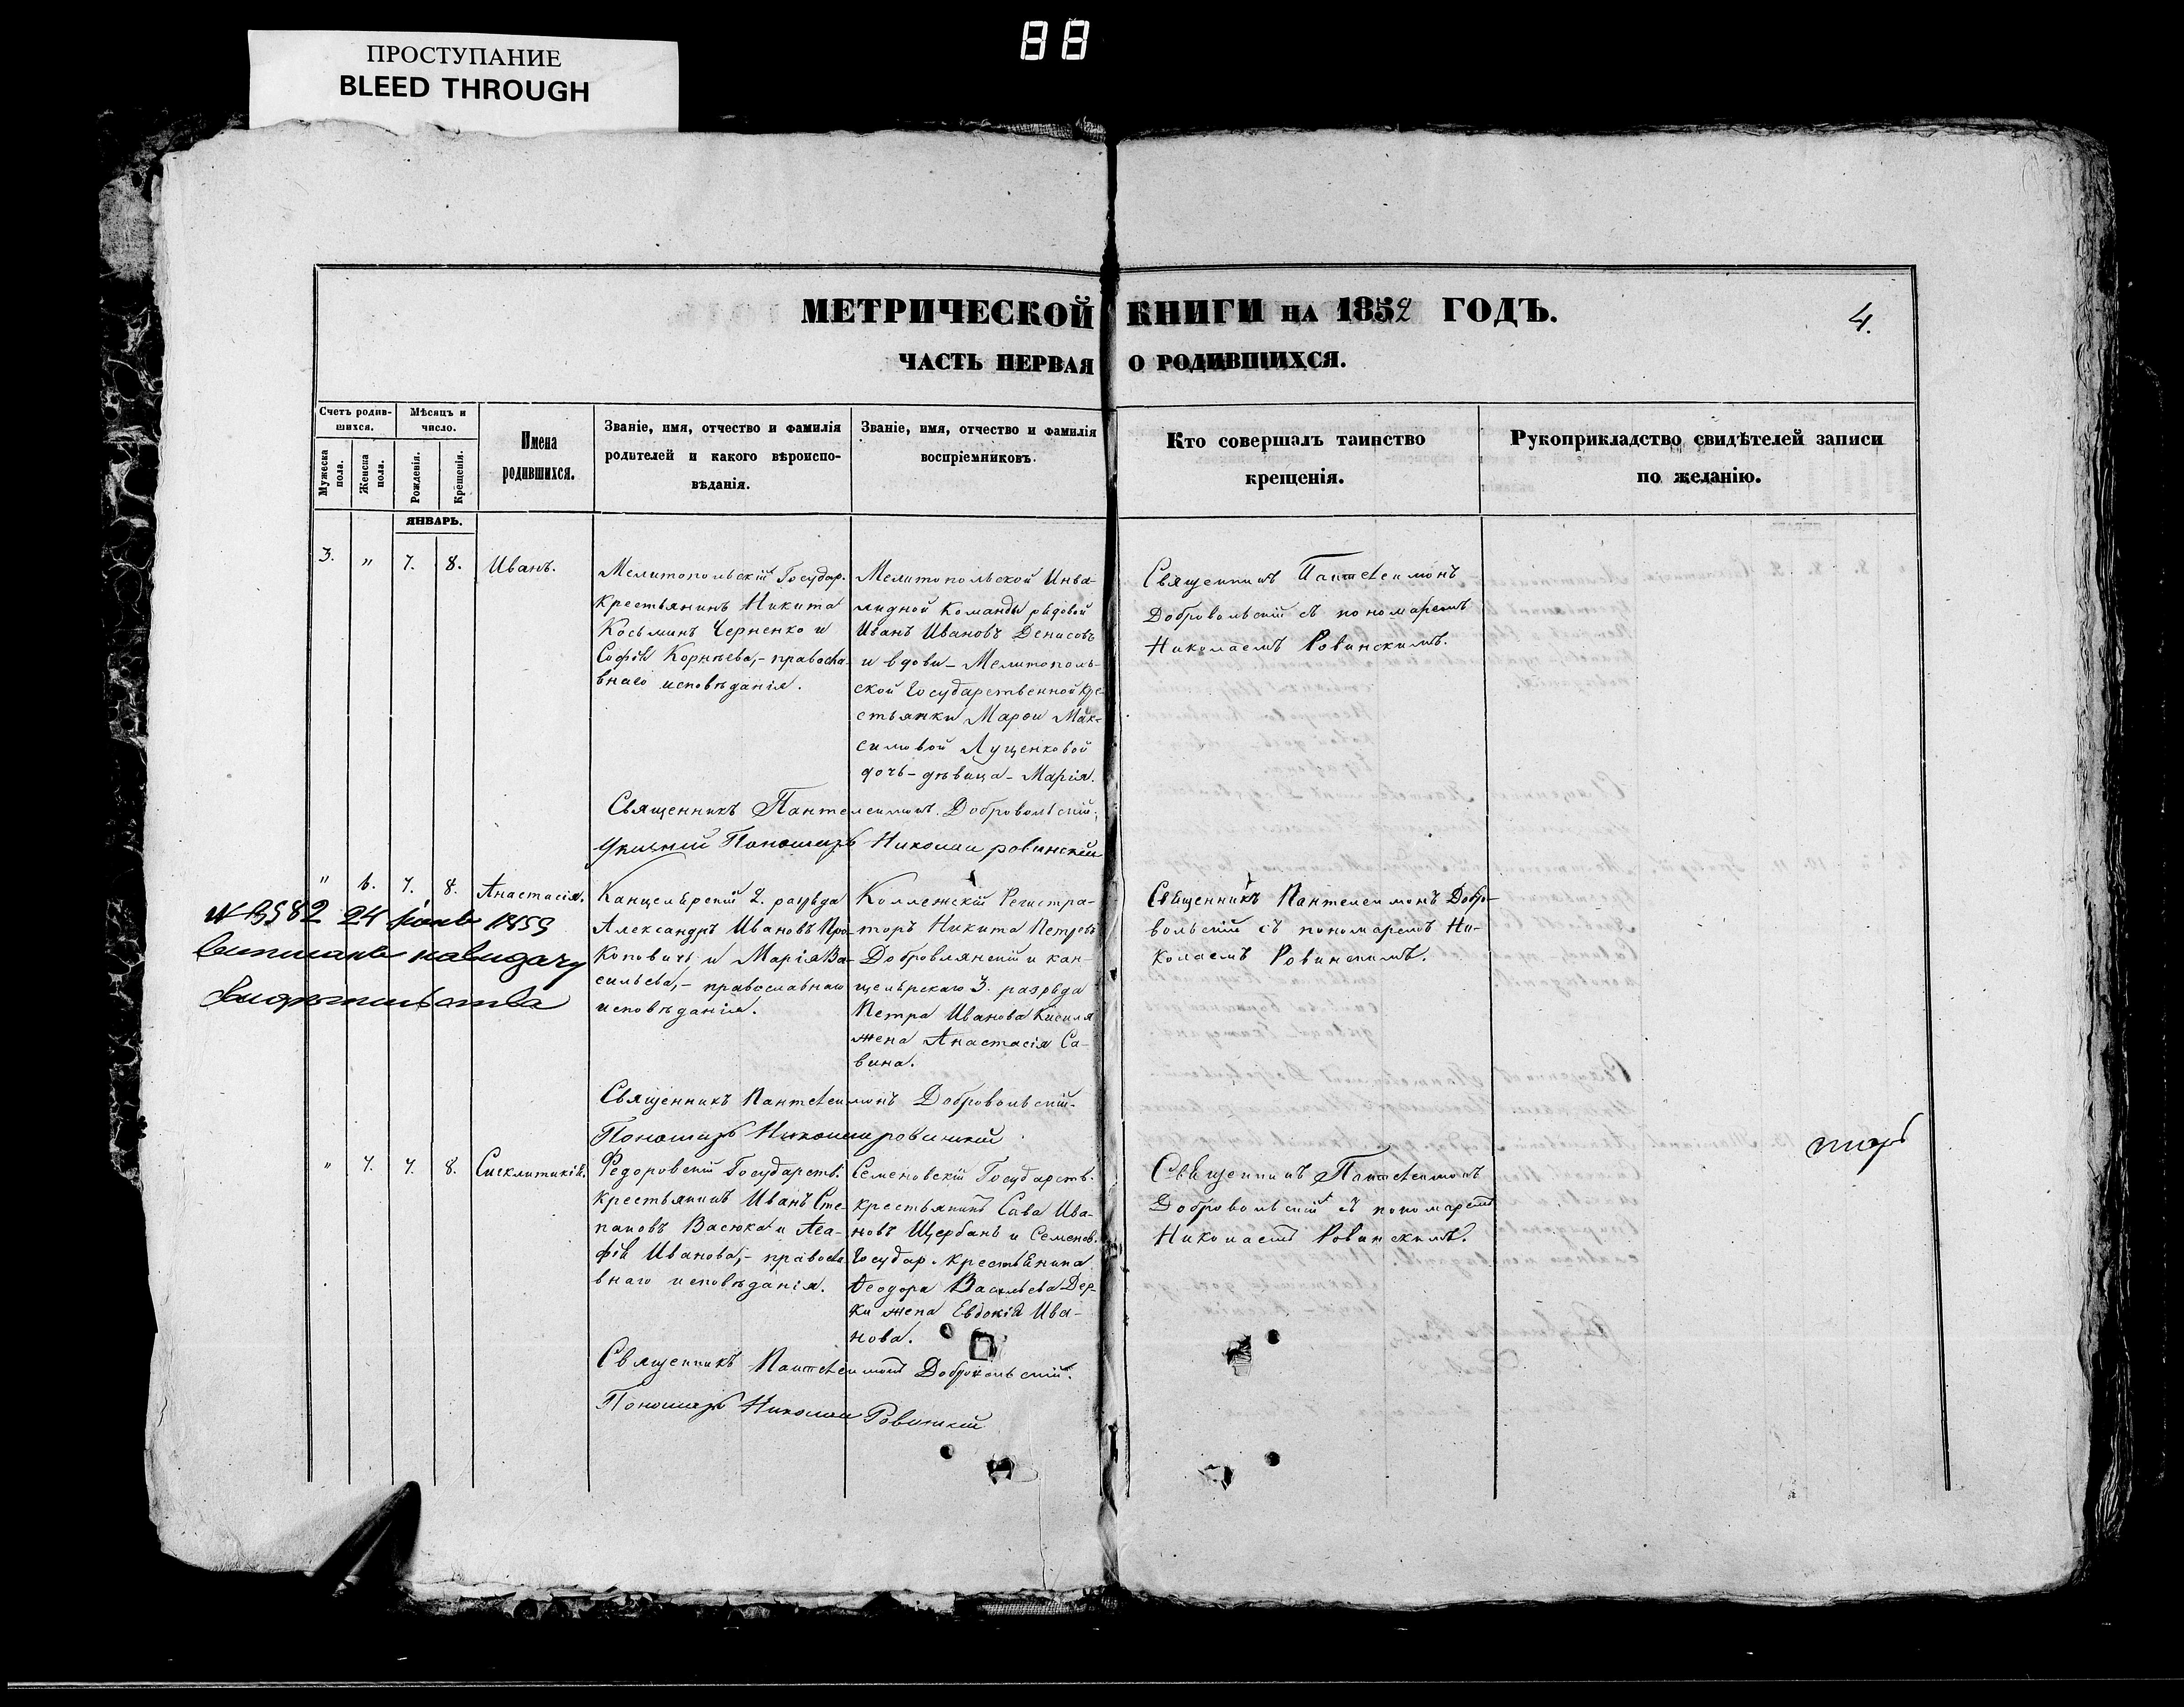 88
ПРОСТУПАНИЕ
BLEED THROUGH
МЕТРИЧЕСКОЙ КНИГИ НА 1852 ГОДЪ.
4.
ЧАСТЬ ПЕРВАЯ О РОДИВШИХСЯ.
Счетъ родив-
шихся.
Мѣсяцъ и
число.
Мужеска
пола.
Женска
пола.
Рожденія.
Крещенія.
Имена
родившихся.
Званіе, имя, отчество и фамилія
родителей и какого вѣроиспо-
вѣданія.
Званіе, имя, отчество и фамилія
воспріемниковъ.
Кто совершалъ таинство
крещенія.
Рукоприкладство свидѣтелей записи
по желанію.
ЯНВАРЬ.
3. " 7. 8. Иванъ.
Мелитопольскій Государ.
крестьянинъ Никита
Косьминъ Черненко и
Софія Корнѣева,- правосла-
внаго исповѣданія.
Мелитопольской Инва-
лидной Команды рядовой
Иванъ Ивановъ Денисовъ
и вдовы - Мелитополь-
ской Государственной кре-
стьянки Марѳы Мак-
симовой Лущенковой
дочь - дѣвица - Марія.
Священникъ Пантелеимонъ
Добровольскій съ пономаремъ
Николаемъ Ровинскимъ.
Священникъ Пантелеимонъ Добровольскій.
Пономарь Николай Ровинскій
" 6. 7. 8. Анастасія.
24 1859
Канцелярскій 2. разряда
Александръ Ивановъ Про-
коповичъ и Марія Ва-
сильева,- православнаго
исповѣданія.
Коллежскій Регистра-
торъ Никита Петровъ
Добровлянскій и кан-
целярскаго 3. разряда
Петра Иванова Кисиля
жена Анастасія Са-
вина.
Священникъ Пантелеимонъ Добро-
вольскій съ пономаремъ Ни-
колаемъ Ровинскимъ.
Священникъ Пантелеимонъ Добровольскій.
Пономарь Николай Ровинскій
" 7. 7. 8. Сигклитикія.
Федоровскій Государств.
крестьянинъ Иванъ Сте-
пановъ Васюка и Ага-
фія Иванова,- правосла-
внаго исповѣданія.
Семеновскій Государств.
крестьянинъ Сава Ива-
новъ Щербань и Семенов.
Государ. крестьянина
Ѳеодора Васильева Дер-
ки жена Евдокія Ива-
нова.
Священникъ Пантелеимонъ
Добровольскій съ пономаремъ
Николаемъ Ровинскимъ.
Священникъ Пантелеимонъ Добровольскій.
Пономарь Николай Ровинскій